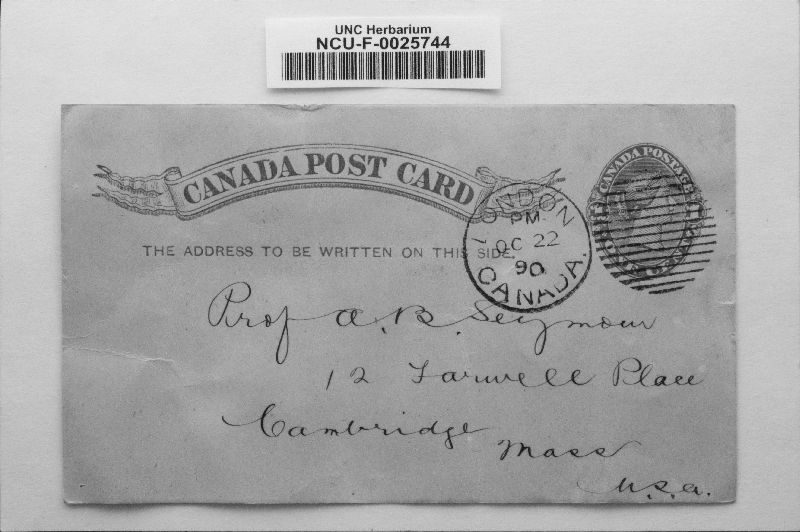 UNC Herbarium
NCU-F-0025744
CANADA POST CARD
CANADA POSTAGE
THE ADDRESS TO BE WRITTEN ON THIS SIDE.
LONDON
PM
OC 22
90
CANADA.
Prof A. B. Seymour
12 Farwell Place
Cambridge
Mass
U.S.A.